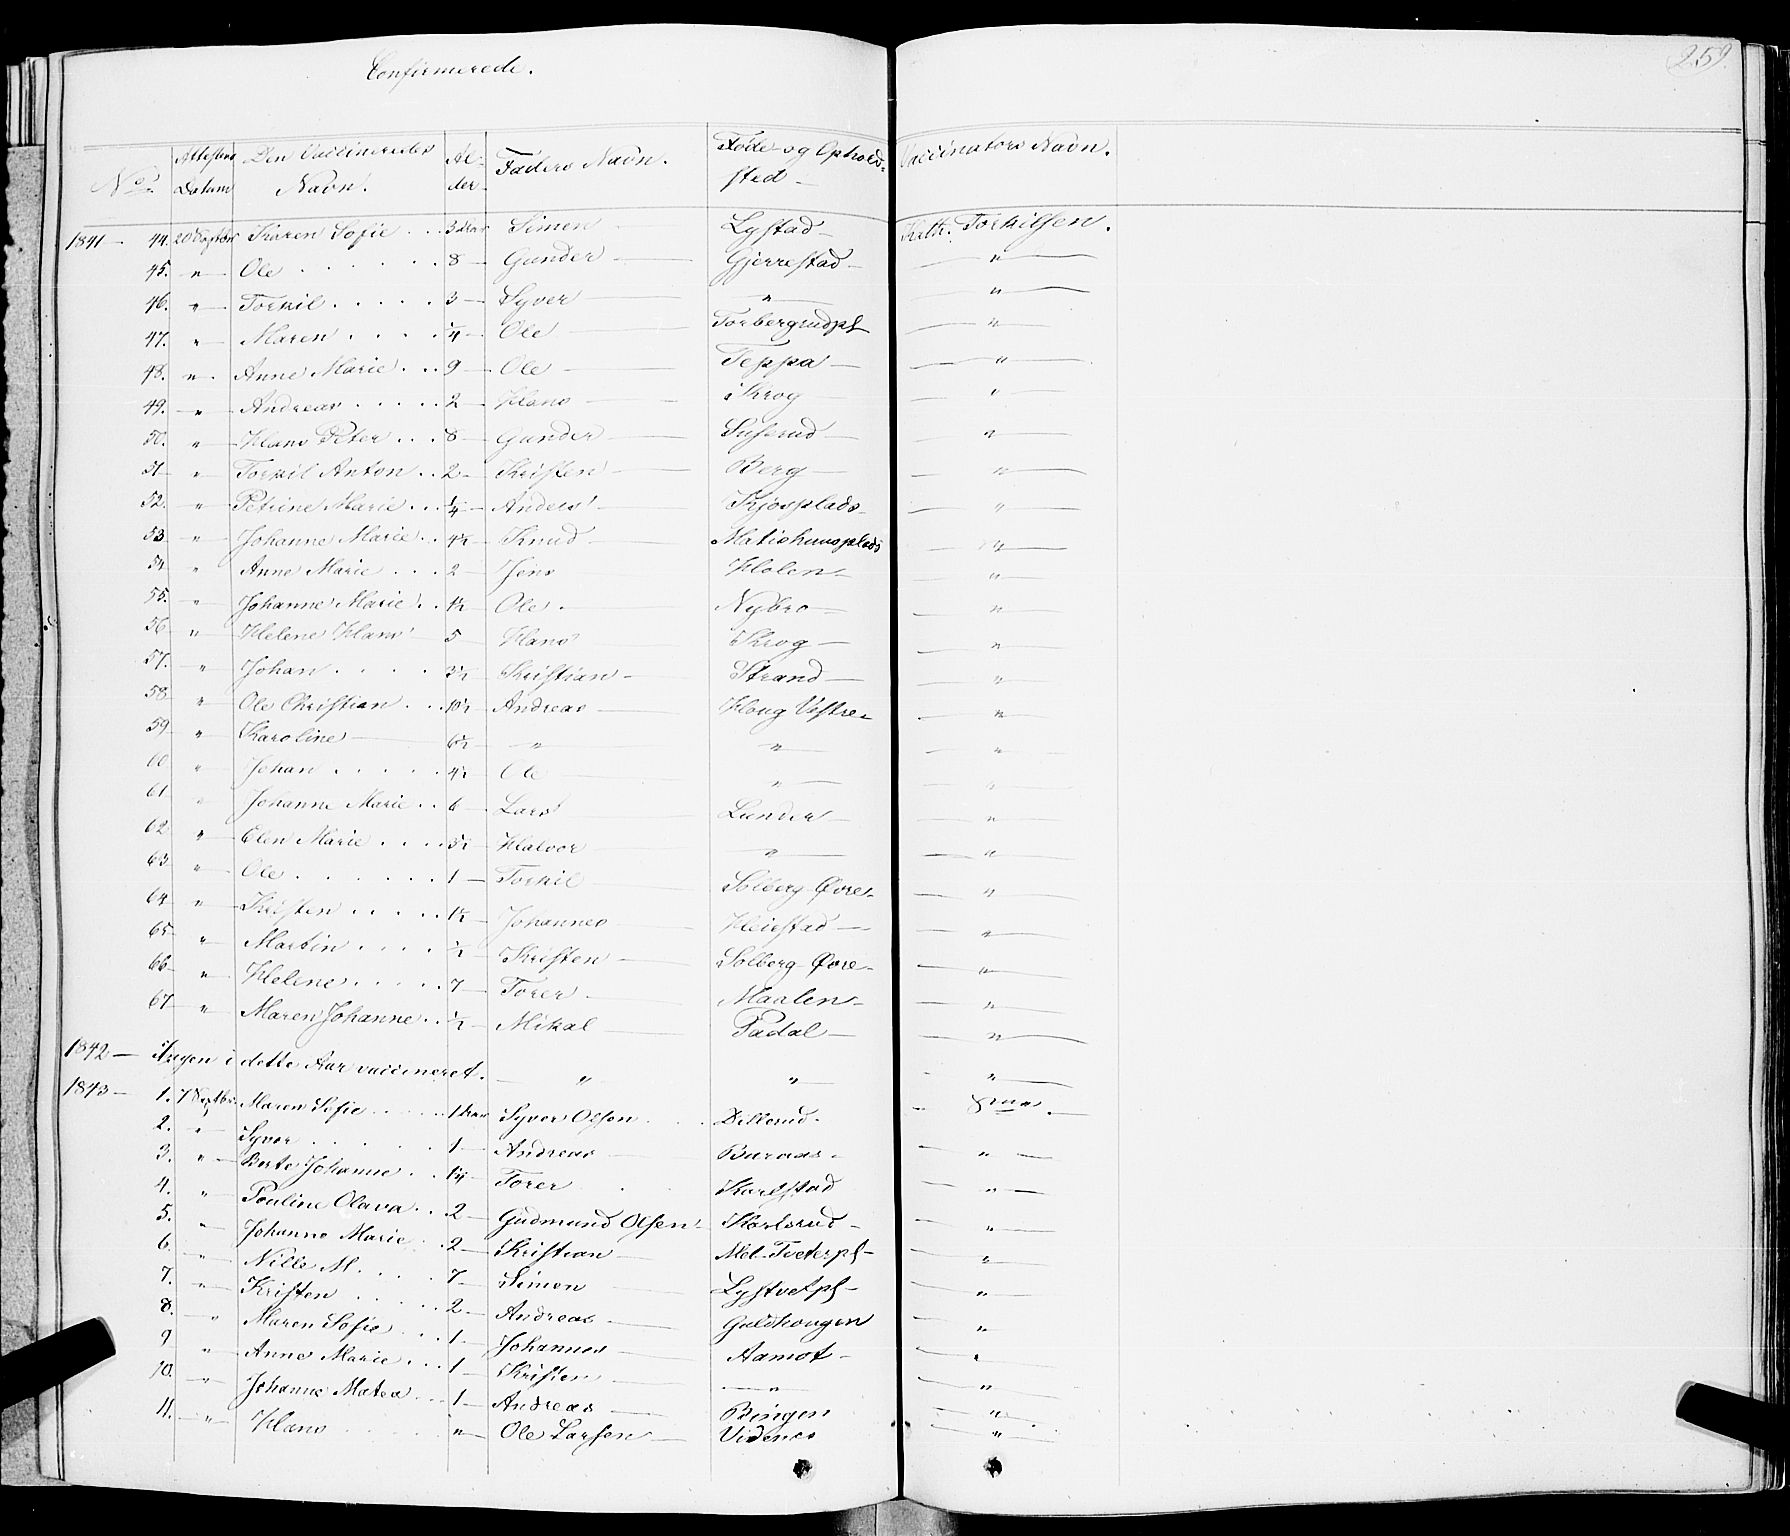 Confirmerede.
259.
No. Attestens Datum Den Vaccineredes Navn. Al- der Faders Navn. Føde- og Opholds- sted Vaccinators Navn.
1841 — 44. 20 Septbr Karen Sofie . . 3 Aar Simen Lystad — Kath. Torkilsen.
45. " Ole . . . . . . 8 — Gunder — Gjerrestad — "
46. " Torkil . . . . . 3 — Syver " — "
47. " Maren . . . . 1/4 — Ole — Torbergrudpl "
48. " Anne Marie . . . 9 — Ole — Teppa — "
49. " Andreas . . . . . 2 — Hans — Krog "
50. " Hans Peter . . . 8 — Gunder — "
51 " Torkil Anton . . 2 — Kristen — Berg — "
52. " Petrine Marie . . . 1/4 — Anders — Kjosplads — "
53. " Johanne Marie . . 4 1/2 — Knud — "
54. " Anne Marie . . . 2 — Jens Holen — "
55. " Johanne Marie . . 1 1/2 — Ole — Nybro — "
56 " Helene Hans 5 Hans Krog — "
57. " Johan . . . . . 3 1/2 — Kristian — Strand — "
58. " Ole Christian . . 10 1/2 — Andreas — Houg Vestre — "
59 " Karoline — 6 1/2 — " " "
60 " Johan . . . . . 4 1/2 — Ole — " "
61 " Johanne Marie . . 6 — Lars Lunder — "
62 " Elen Marie . . . . 3 1/2 — Halvor " "
63 " Ole . . . . . . . 1 — Torkil — Solberg Øvre — "
64 " Kristen . . . . . 1 1/2 — Johannes — Heiestad — "
65 " Martin . . . . . 1/2 — Kristen — Solberg Øvre — "
66 " Helene . . . . . 7 — Torer — Maalen — "
67 " Maren Johanne . . 1/2 — Mikal — Padal — "
1842 — Ingen i dette Aar vaccineret. " " "
1843 — 1. 7 Septbr. Maren Sofie . . . . . 1 Aar Syver Olsen . . .
2. " Syver . . . . . . 1 — Andreas — Buraas — "
3. " Berte Johanne . . 1 1/4 — Torer . . Karlstad "
4. " Pouline Olava . . 2 — Gudmund Olsen — Karlsrud — "
5. " Johanne Marie . . 2 — Kristian — Mel. Tveterpl — "
6. " Nille M. . . . . 7 — Simen Lystvetpl — "
7. " Kristen . . . . . 2 — Andreas — Guldhougen "
8. " Maren Sofie . . . 1 — Johannes — Aamot — "
9 " Anne Marie . . . 1 — Kristen — " "
10. " Johanne Matea . . . 1 — Andreas — Bingen "
11. " Hans . . . . . . " — Ole Larsen — Videnes "